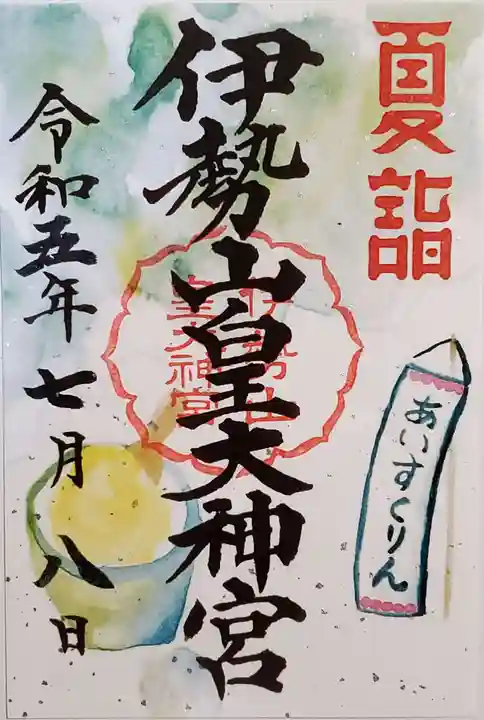 夏詣
伊勢山皇大神宮
伊勢山
皇大神宮
あいすくりん
令和五年七月八日